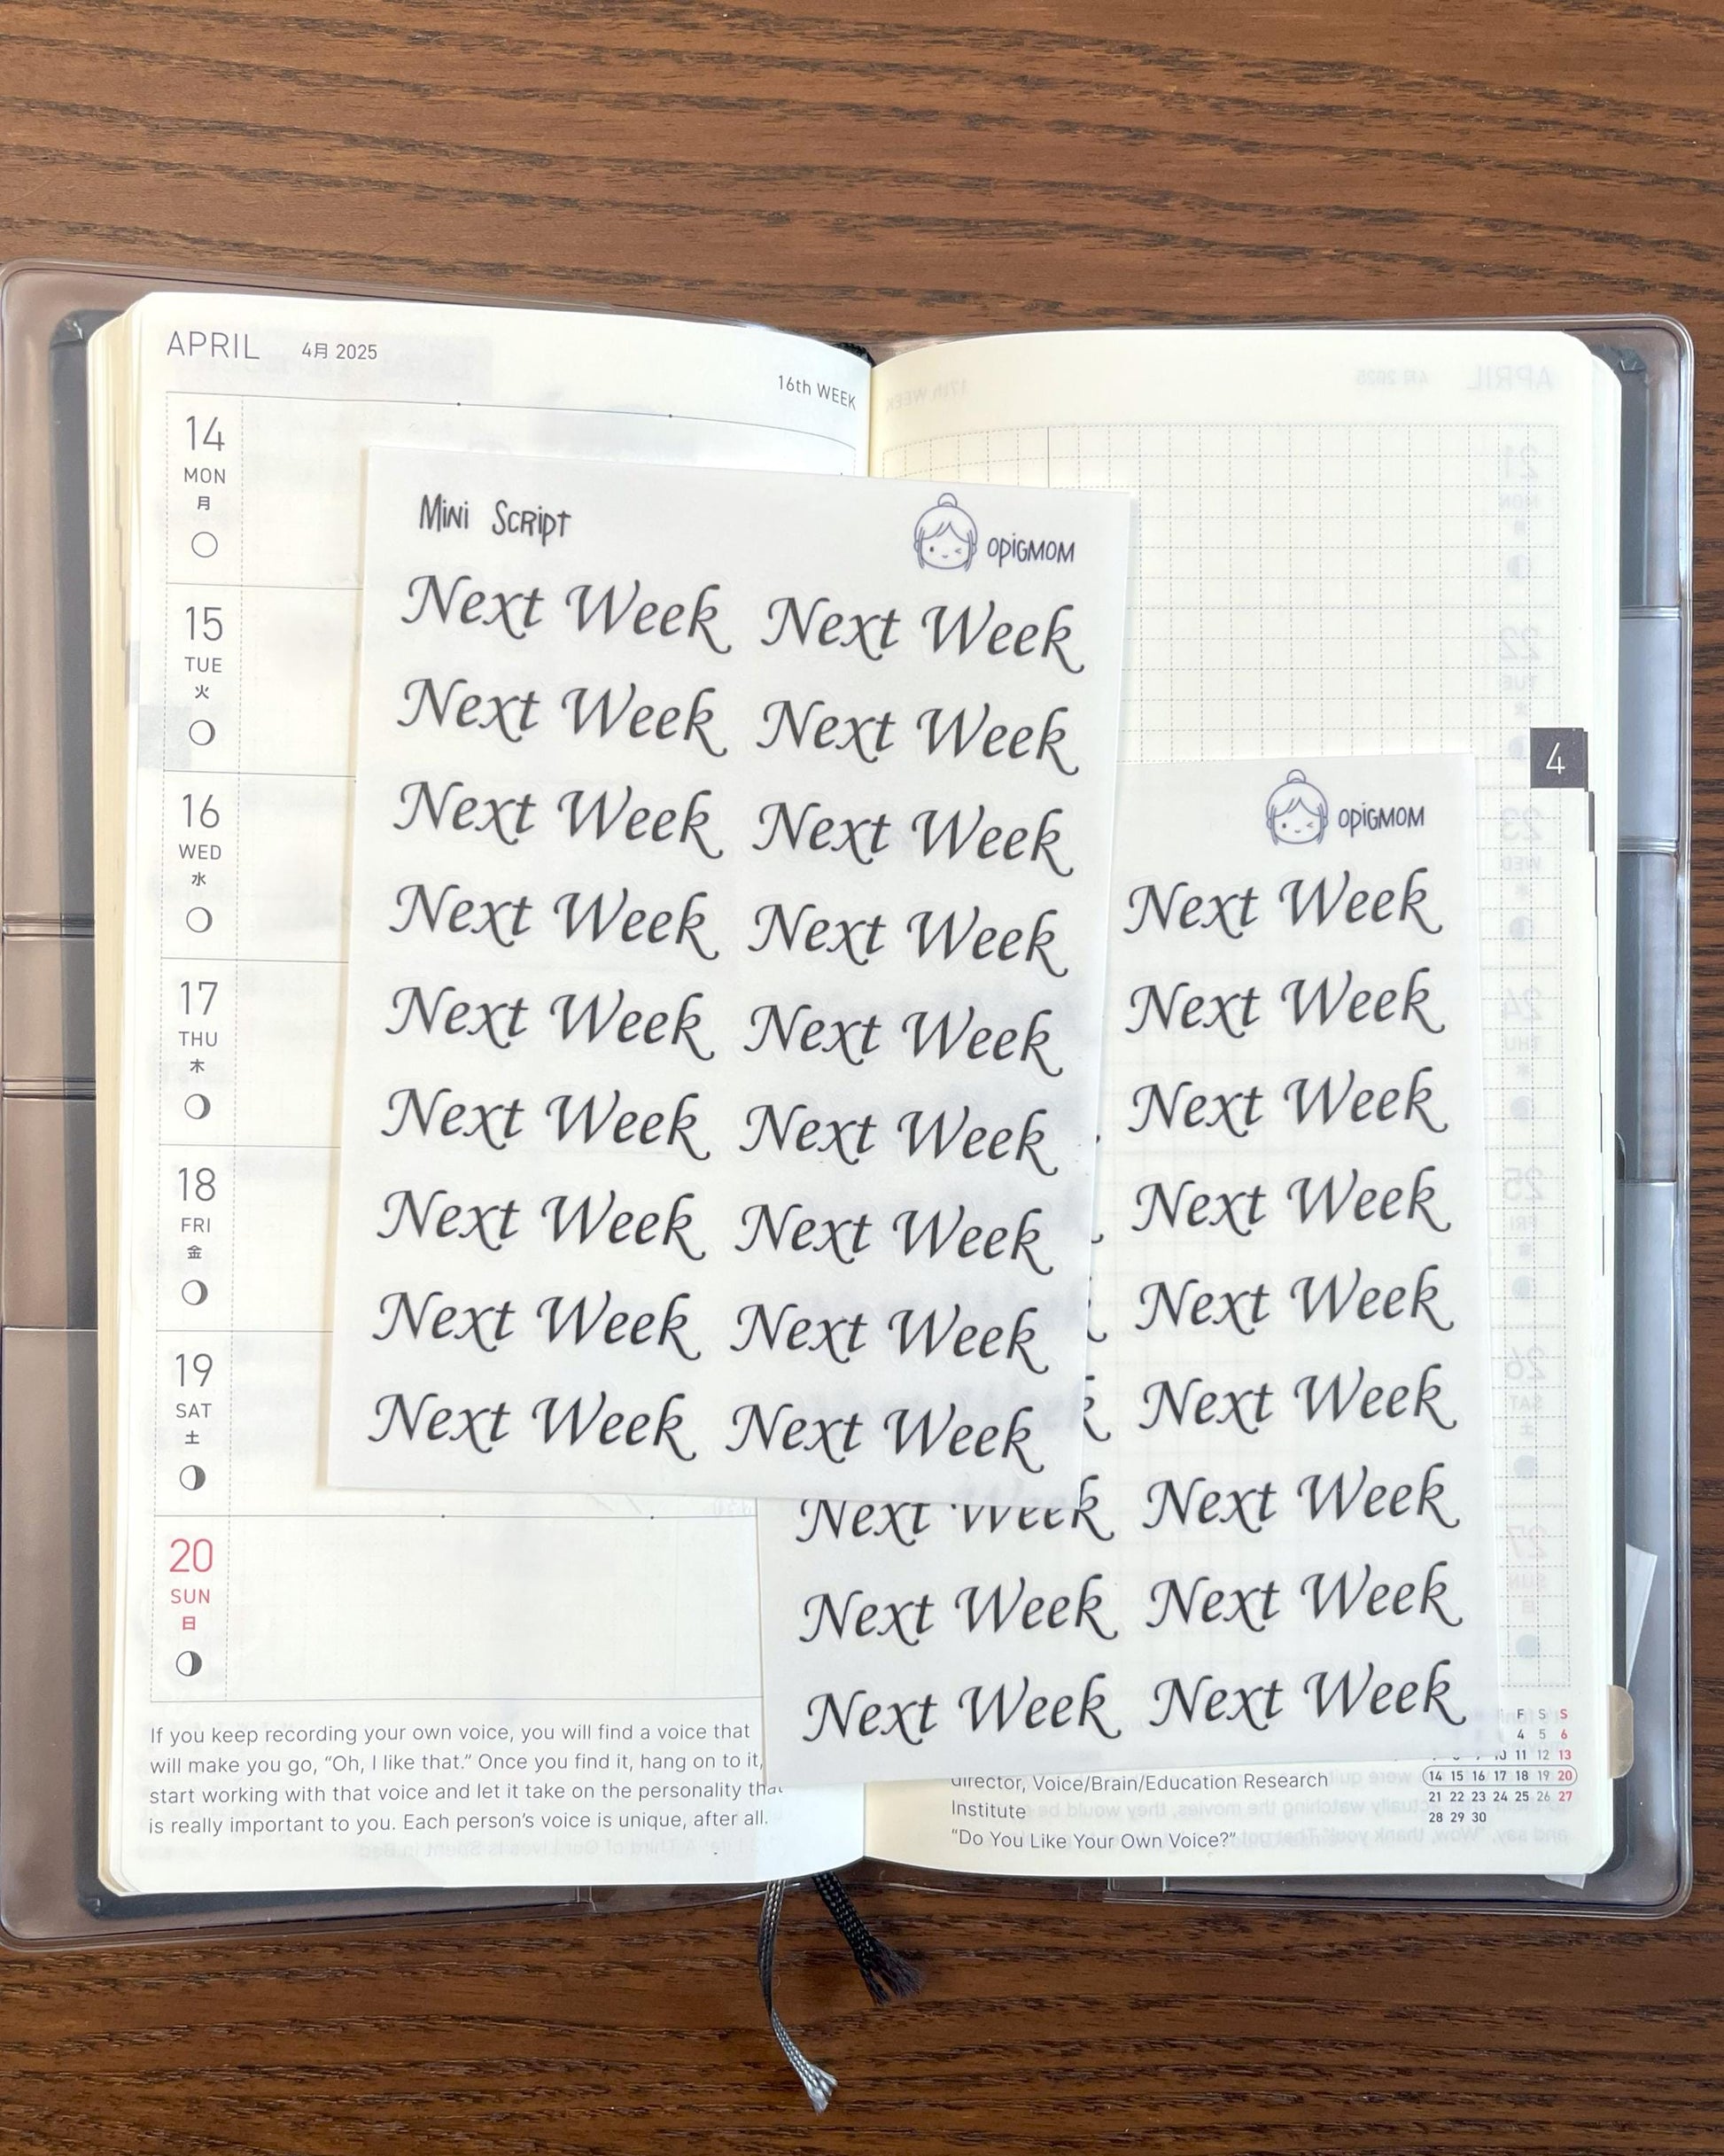 APRIL 4月 2025
16th WEEK
14
MON
月
15
TUE
火
16
WED
水
17
THU
木
18
FRI
金
19
SAT
土
20
SUN
日
If you keep recording your own voice, you will find a voice that
will make you go, “Oh, I like that.” Once you find it, hang on to it,
start working with that voice and let it take on the personality that
is really important to you. Each person’s voice is unique, after all.
Mini Script OpiGMOM
Next Week Next Week
Next Week Next Week
Next Week Next Week
Next Week Next Week
Next Week Next Week
Next Week Next Week
Next Week Next Week
Next Week Next Week
Next Week Next Week
OpiGMOM
Next Week
Next Week
Next Week
Next Week
Next Week
Next Week
Next Week Next Week
Next Week Next Week
Next Week Next Week
4
director, Voice/Brain/Education Research
Institute
“Do You Like Your Own Voice?”
F S S
4 5 6
10 11 12 13
14 15 16 17 18 19 20
21 22 23 24 25 26 27
28 29 30